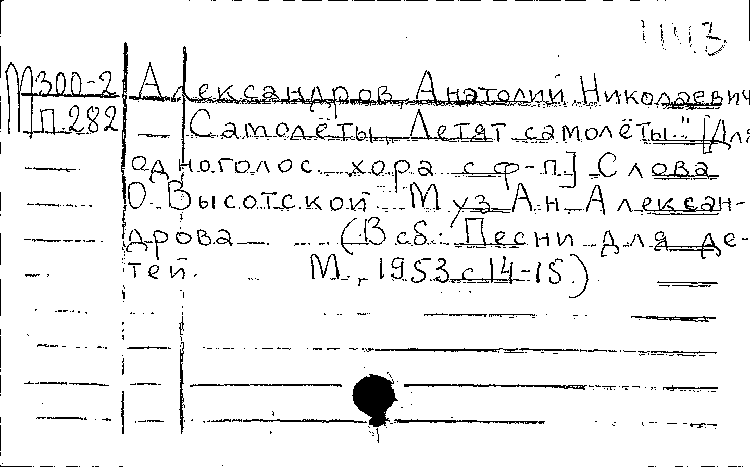 1143
М300-2 Александров, Анатолий Николаевич
П 282 Самолёты „Летят самолёты..." [Для
одноголос. хора с ф-п.] Слова
О. Высотской Муз. Ан. Алексан-
дрова (В сб.: Песни для де-
тей. М., 1953 с 14-15.)